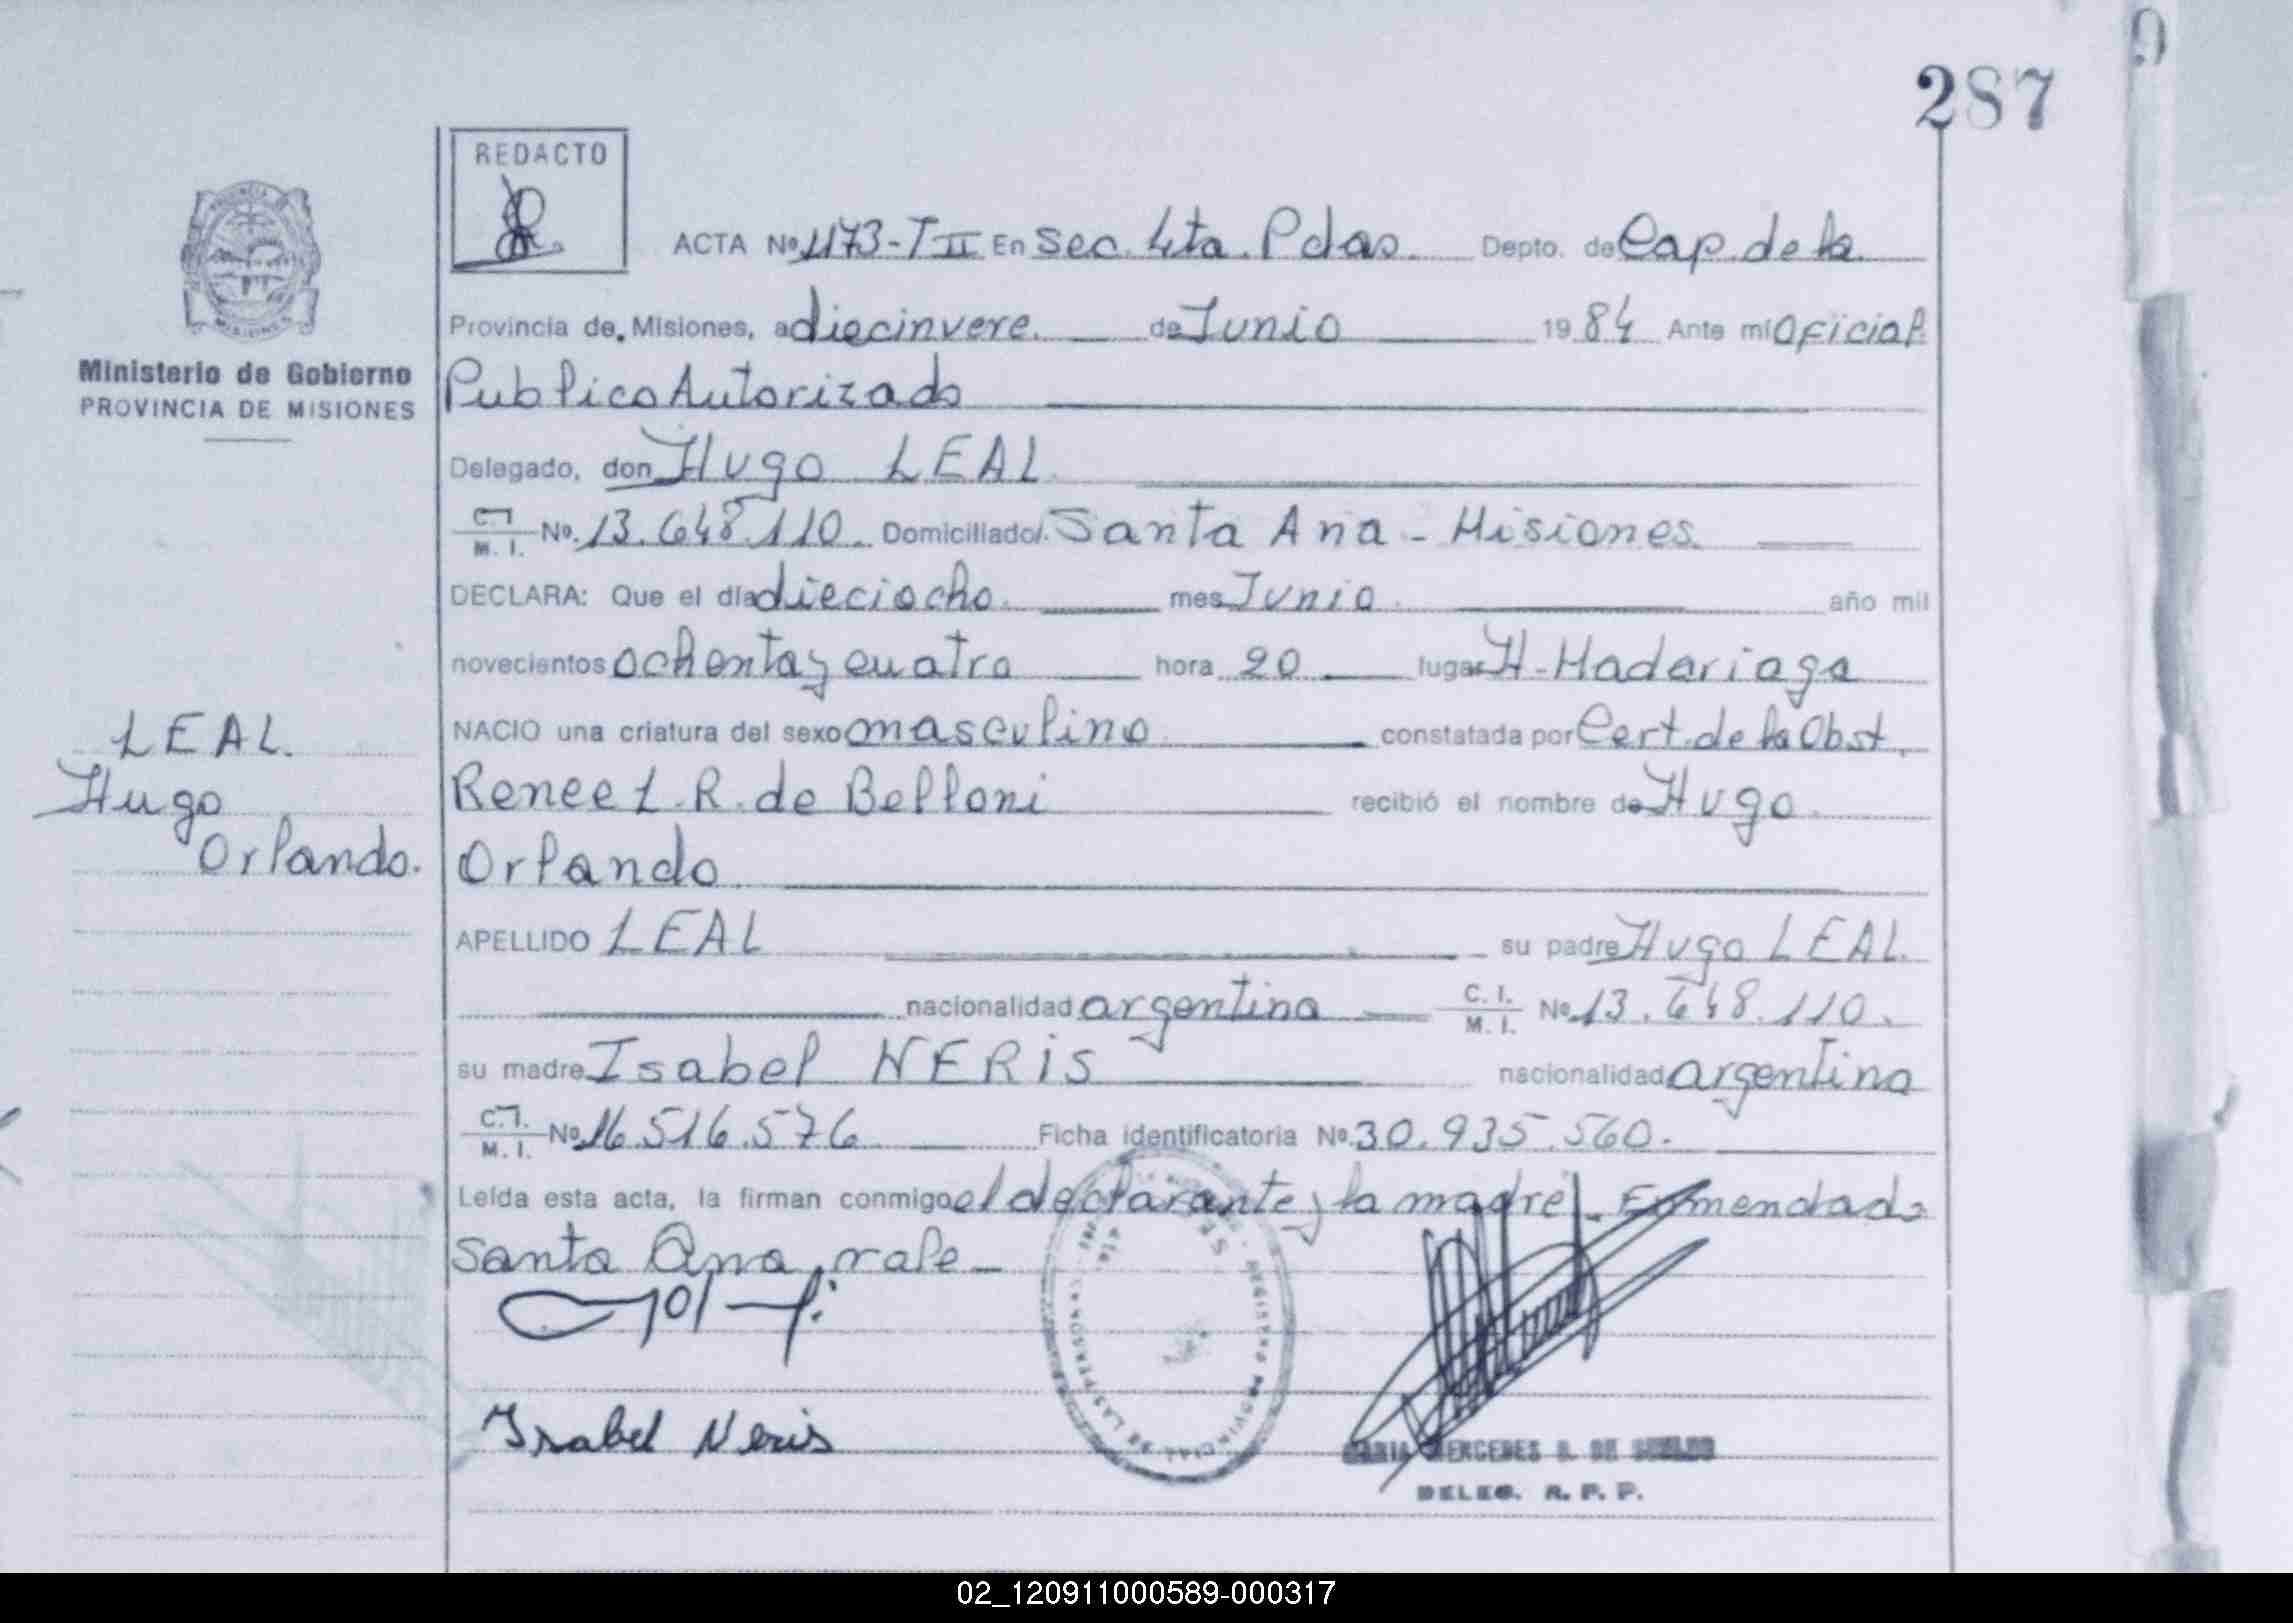 287
REDACTO
ACTA Nº 1173-T II En Sec. 4ta. Pdas. Depto. de Cap. de la
Provincia de Misiones, a diecinvere. de Junio 1984 Ante mí Oficial
Publico Autorizado
Delegado, don Hugo LEAL
C.I. M. I. Nº. 13.648.110. Domiciliado/. Santa Ana - Misiones.
DECLARA: Que el día dieciocho. mes Junio. año mil
novecientos ochenta y cuatro hora 20 lugar H. Madariaga
NACIO una criatura del sexo masculino constatada por Cert. de la Obst.
Renee L. R. de Belloni recibió el nombre de Hugo
Orlando
APELLIDO LEAL su padre Hugo LEAL.
nacionalidad argentina C. I. M. I. Nº 13.648.110.
su madre Isabel NERIS nacionalidad argentina
C.I. M. I. Nº 16.516.576 Ficha identificatoria Nº. 30.935.560.
Leída esta acta, la firman conmigo el declarante y la madre. Enmendado
Santa Ana, vale -
Isabel Neris
MERCEDES
DELEG. R. P. P.
Ministerio de Gobierno
PROVINCIA DE MISIONES
LEAL.
Hugo
Orlando.
02_120911000589-000317